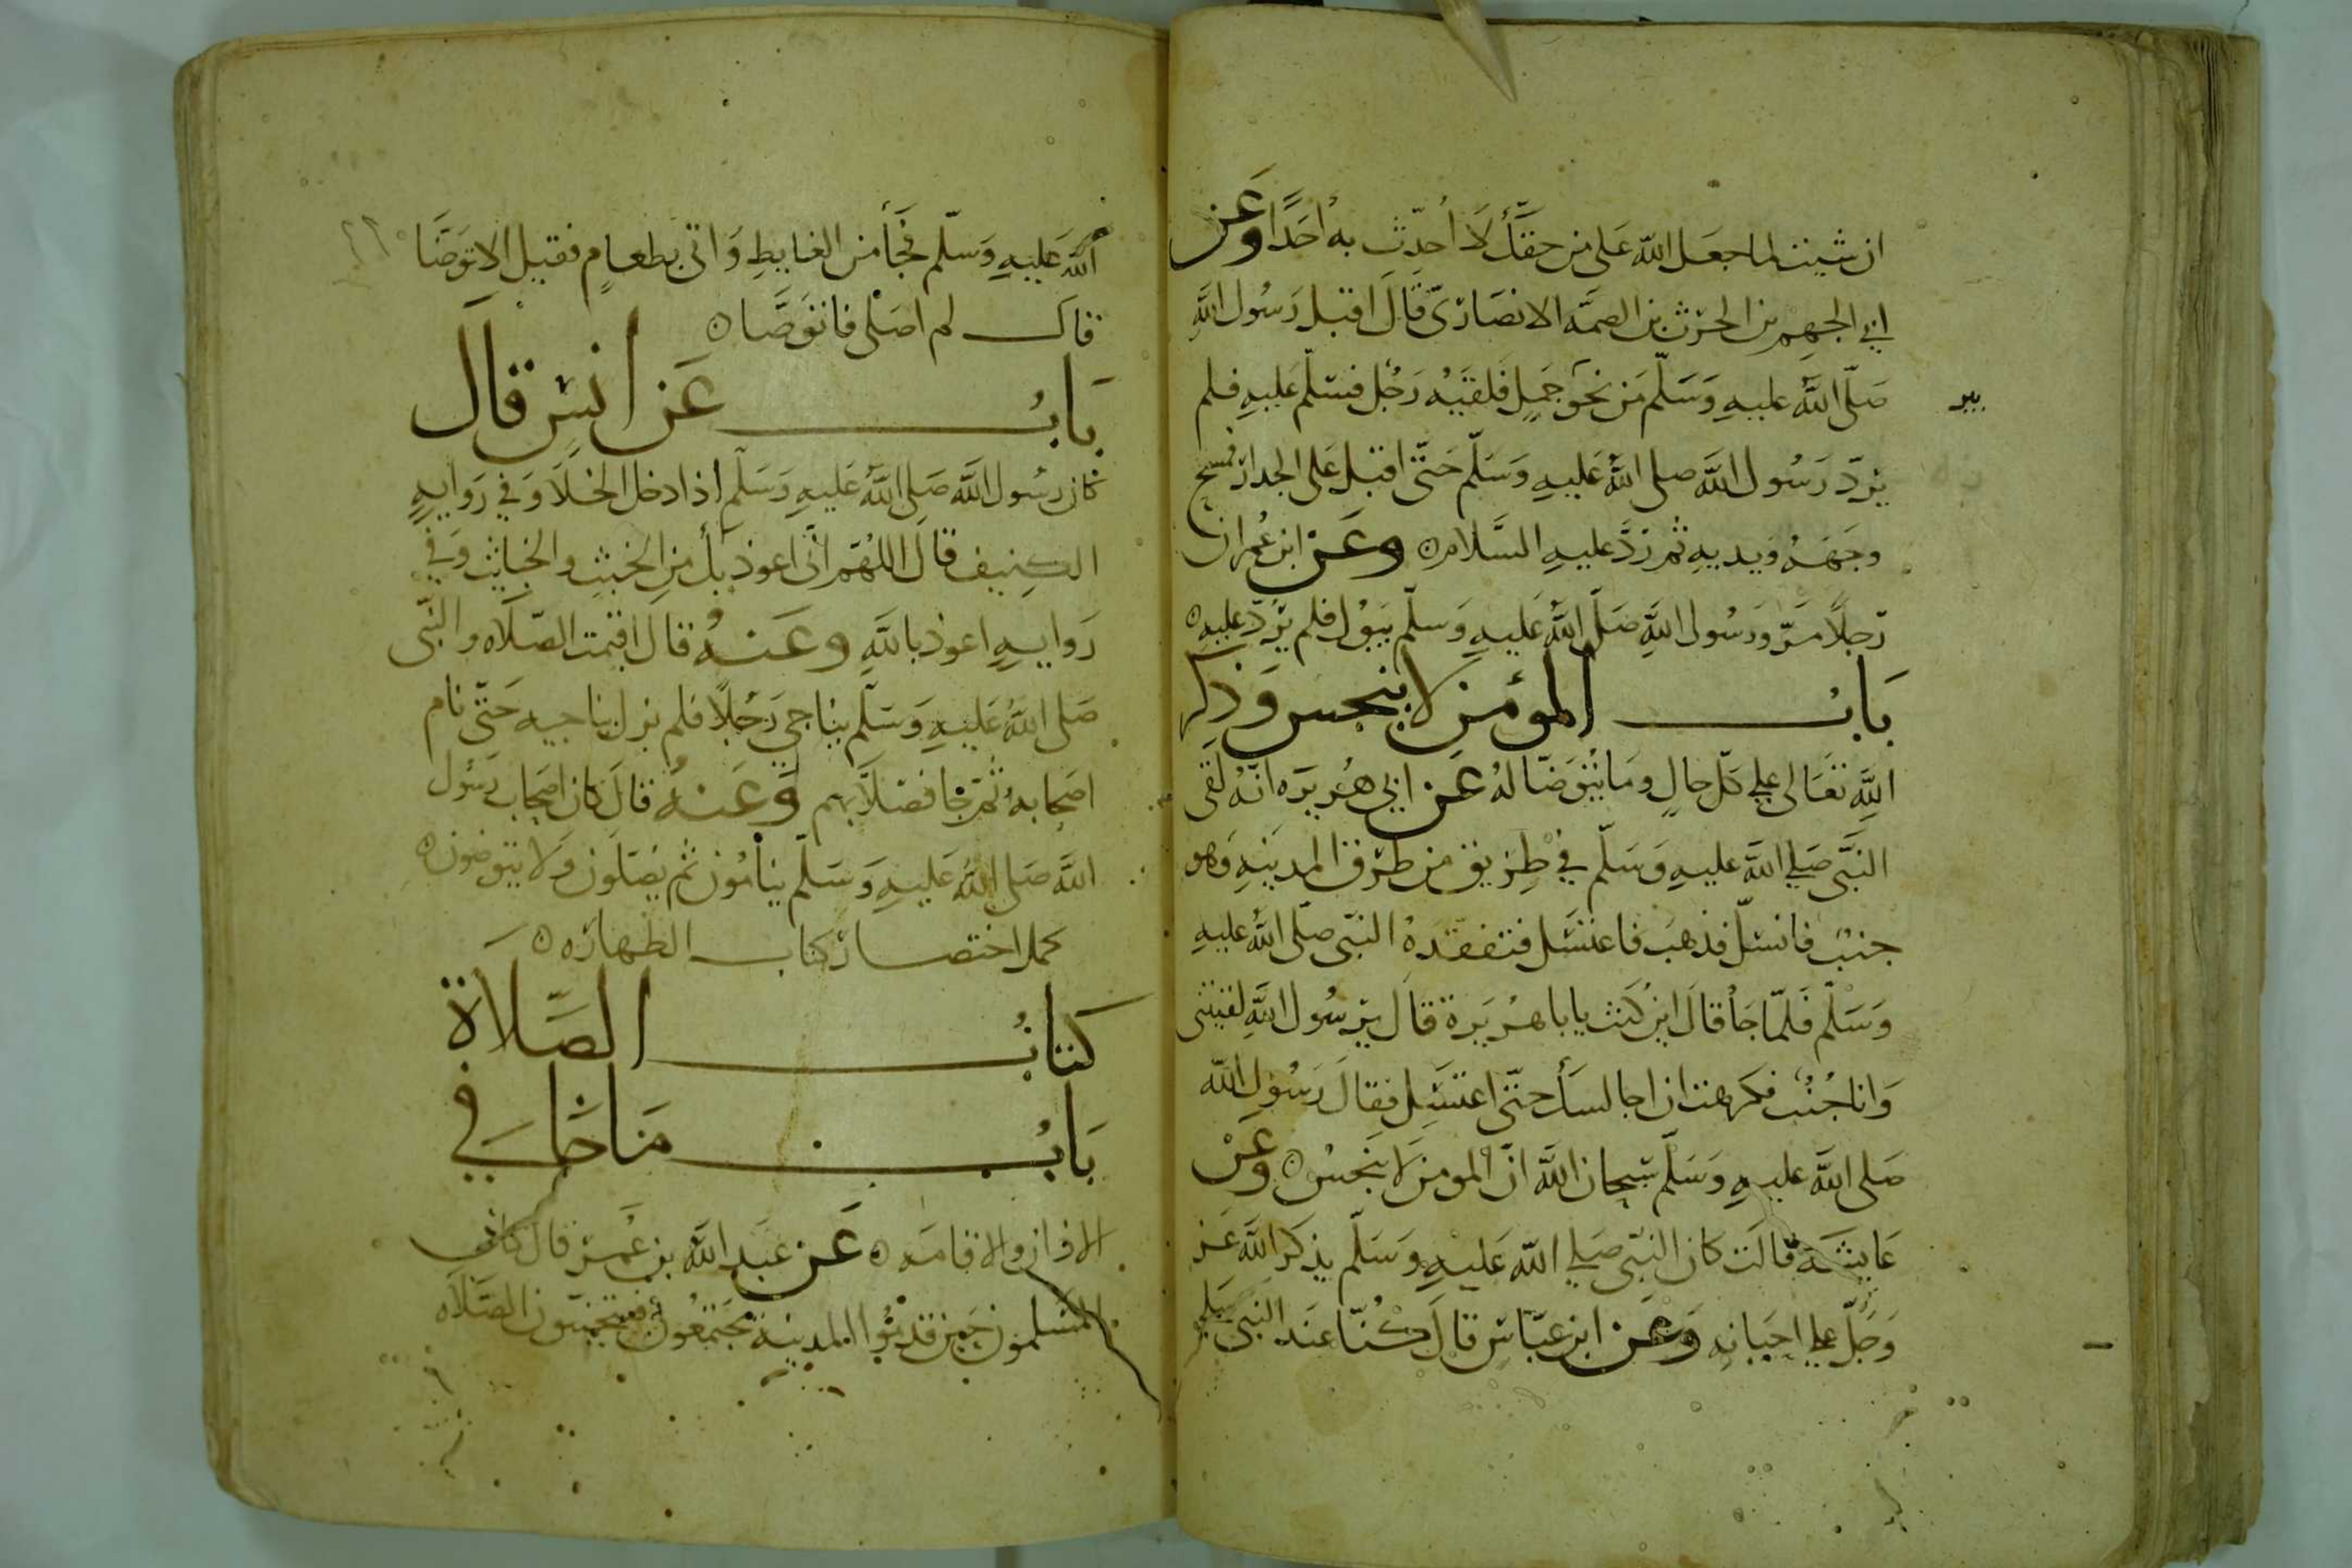 ان شئت لما جعل الله علي من حقك لا أحدث به احدا وعن
ابي الجهم بن الحرث بن الصمه الانصاري قال اقبل رسول الله
صلى الله عليه وسلم من نحو جمل فلقيه رجل فسلم عليه فلم
بير
يرد رسول الله صلى الله عليه وسلم حتى اقبل على الجدار فمسح
وجهه ويديه ثم رد عليه السلام وعن ابن عمر ان
رجلا مر ورسول الله صلى الله عليه وسلم يبول فلم يرد عليه
باب المؤمن لا ينجس وذكر
الله تعالى على كل حال وما يتوضا له عن ابي هريره انه لقي
النبي صلى الله عليه وسلم في طريق من طرق المدينه وهو
جنب فانسل فذهب فاغتسل فتفقده النبي صلى الله عليه
وسلم فلما جأ قال اين كنت يابا هريرة قال يرسول الله لقيتني
وانا جنب فكرهت ان اجالسك حتى اغتسل فقال رسول الله
صلى الله عليه وسلم سبحان الله ان المومن لا ينجس وعن
عايشة قالت كان النبي صلى الله عليه وسلم يذكر الله عز
وجل على احيانه وعن ابن عباس قال كنا عند النبي صلى
الله عليه وسلم فجأ من الغايط واتى بطعام فقيل الا توضا
قال لم اصلى فاتوضا
باب عن انس قال
كان رسول الله صلى الله عليه وسلم اذا دخل الخلا وفي روايه
الكنيف قال اللهم انى اعوذ بك من الخبث والخبايث وفي
روايه اعوذ بالله وعنه قال اقيمت الصلاه والنبي
صلى الله عليه وسلم يناجي رجلا فلم يزل يناجيه حتى نام
اصحابه ثم جا فصلا بهم وعنه قال كان اصحاب رسول
الله صلى الله عليه وسلم ينامون ثم يصلون ولا يتوضون
كمل اختصار كتاب الطهاره
كتاب الصلاة
باب ما جا في
الاذان والاقامه عن عبد الله بن عمر قال كان
المسلمون حين قدموا المدينة يجتمعون فيتحينون الصلاه